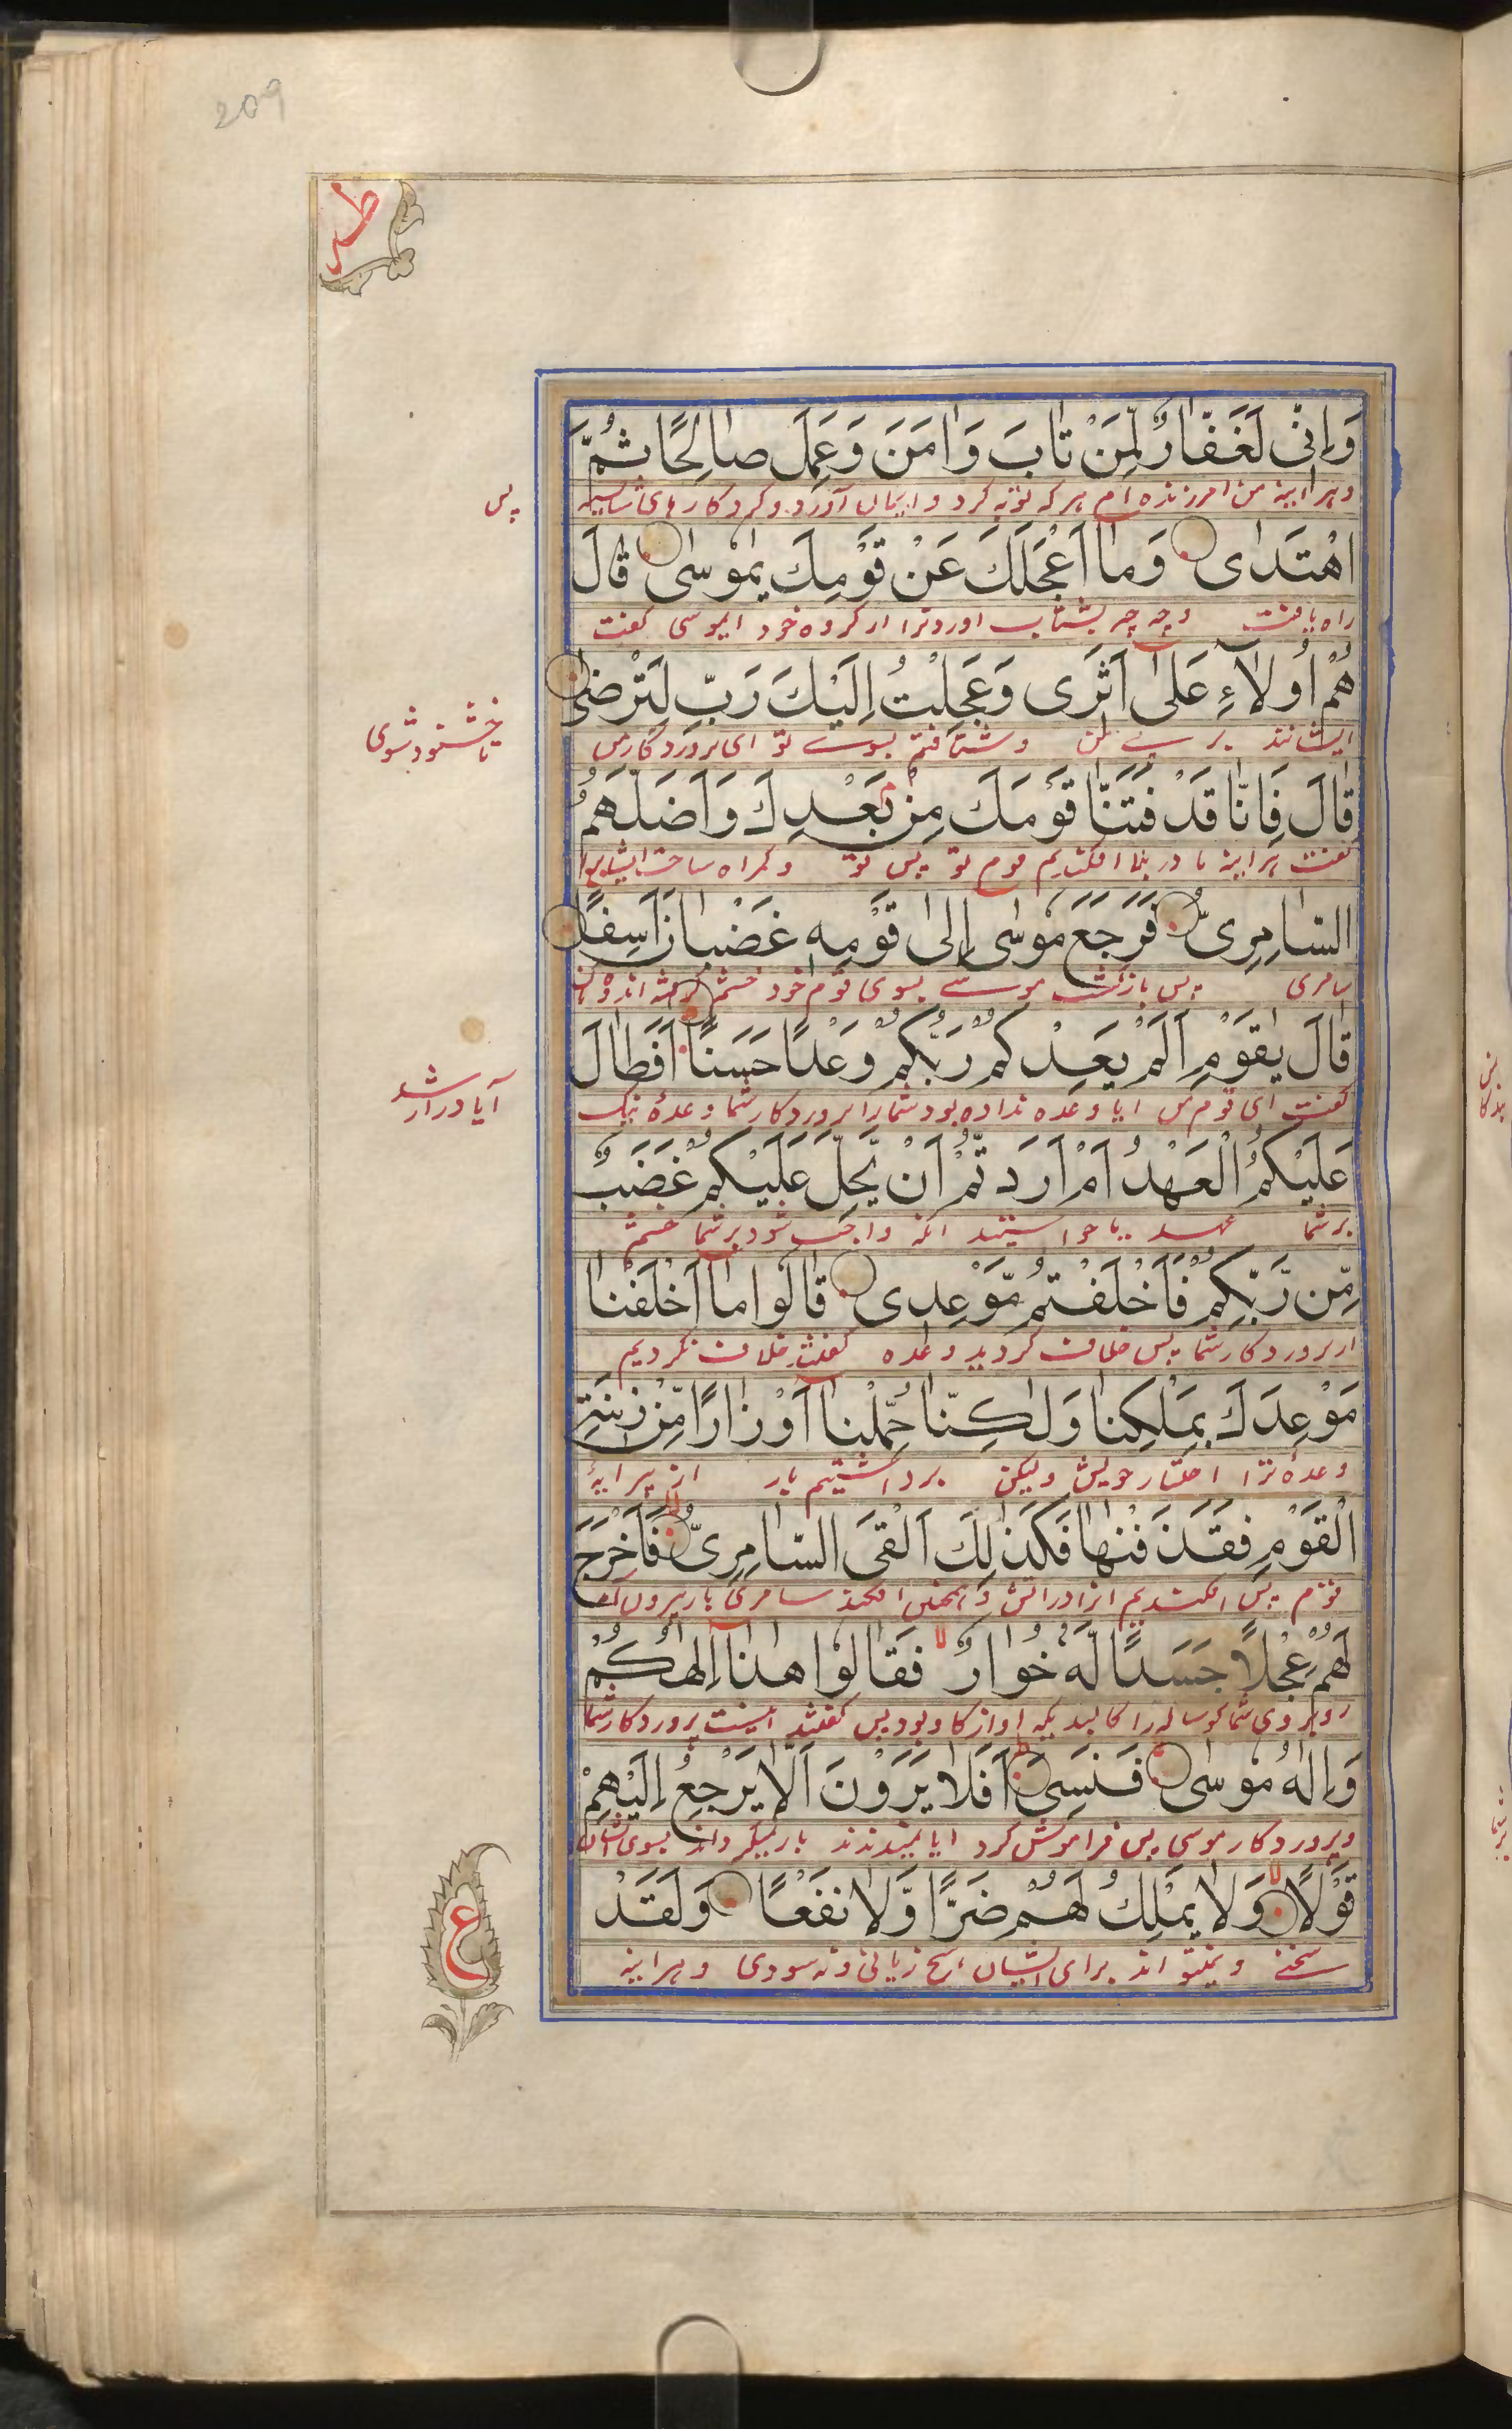 209
طه
وَإِنِّى لَغَفَّارٌ لِّمَنْ تَابَ وَاٰمَنَ وَعَمِلَ صَالِحًا ثُمَّ
و هر آینه من آمرزنده ام هر که توبه کرد و ایمان آورد و کرد کارهای شایسته
پس
اهْتَدٰى وَمَا أَعْجَلَكَ عَنْ قَوْمِكَ يٰمُوسٰى قَالَ
راه یافت و چه چیز بشتاب آورد ترا از گروه خود ایموسی گفت
هُمْ أُولَاءِ عَلىٰ أَثَرِى وَعَجِلْتُ إِلَيْكَ رَبِّ لِتَرْضٰى
ایشانند بر پی من و شتافتم بسوے تو ای پروردگار من
تا خشنود شوی
قَالَ فَإِنَّا قَدْ فَتَنَّا قَوْمَكَ مِنْ بَعْدِكَ وَأَضَلَّهُمُ
گفت هر آینه ما در بلا افکندیم قوم تو پس تو و گمراه ساخت ایشانرا
السَّامِرِىُّ فَرَجَعَ مُوسٰى إِلىٰ قَوْمِهٖ غَضْبَانَ أَسِفًا
سامری پس بازگشت موسے بسوی قوم خود خشم گرفته اندوهگین
قَالَ يٰقَوْمِ أَلَمْ يَعِدْكُمْ رَبُّكُمْ وَعْدًا حَسَنًا أَفَطَالَ
گفت ای قوم من آیا وعده نداده بود شما را پروردگار شما وعدهٔ نیک
آیا دراز شد
عَلَيْكُمُ الْعَهْدُ أَمْ أَرَدْتُّمْ أَنْ يَّحِلَّ عَلَيْكُمْ غَضَبٌ
بر شما عهد یا خواستید آنکه واجب شود بر شما خشم
مِّنْ رَّبِّكُمْ فَأَخْلَفْتُمْ مَّوْعِدِى قَالُوا مَا أَخْلَفْنَا
از پروردگار شما پس خلاف کردید وعده گفتند خلاف نکردیم
مَوْعِدَكَ بِمَلْكِنَا وَلٰكِنَّا حُمِّلْنَا أَوْزَارًا مِّنْ زِينَةِ
وعدهٔ ترا اختیار خویش ولیکن برداشتیم بار از پیرایهٔ
الْقَوْمِ فَقَذَفْنٰهَا فَكَذٰلِكَ أَلْقَى السَّامِرِىُّ فَأَخْرَجَ
قوم پس افکندیم آنرا در آتش و همچنین افکند سامری
لَهُمْ عِجْلًا جَسَدًا لَّهٗ خُوَارٌ فَقَالُوا هٰذَا إِلٰهُكُمْ
روبروی شما گوساله را کالبدیکه آواز گاو بود پس گفتند اینست پروردگار شما
وَإِلٰهُ مُوسٰى فَنَسِىَ أَفَلَا يَرَوْنَ أَلَّا يَرْجِعُ إِلَيْهِمْ
و پروردگار موسی پس فراموش کرد آیا نمیدیدند باز نمیگرداند بسوی ایشان
قَوْلًا وَّلَا يَمْلِكُ لَهُمْ ضَرًّا وَّلَا نَفْعًا وَلَقَدْ
سخنے و نمیتواند برای ایشان هیچ زیانی و نه سودی و هر آینه
ع